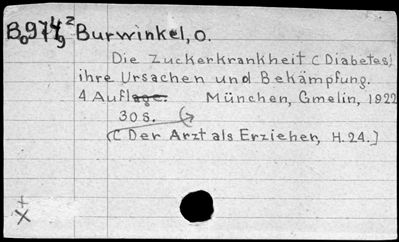 Burwinkel, O.
Die Zuckerkrankheit (Diabetes)
ihre Ursachen und Bekämpfung.
4 Auflage. München, Gmelin, 1922
30 S.
(Der Arzt als Erzieher, H. 24.]